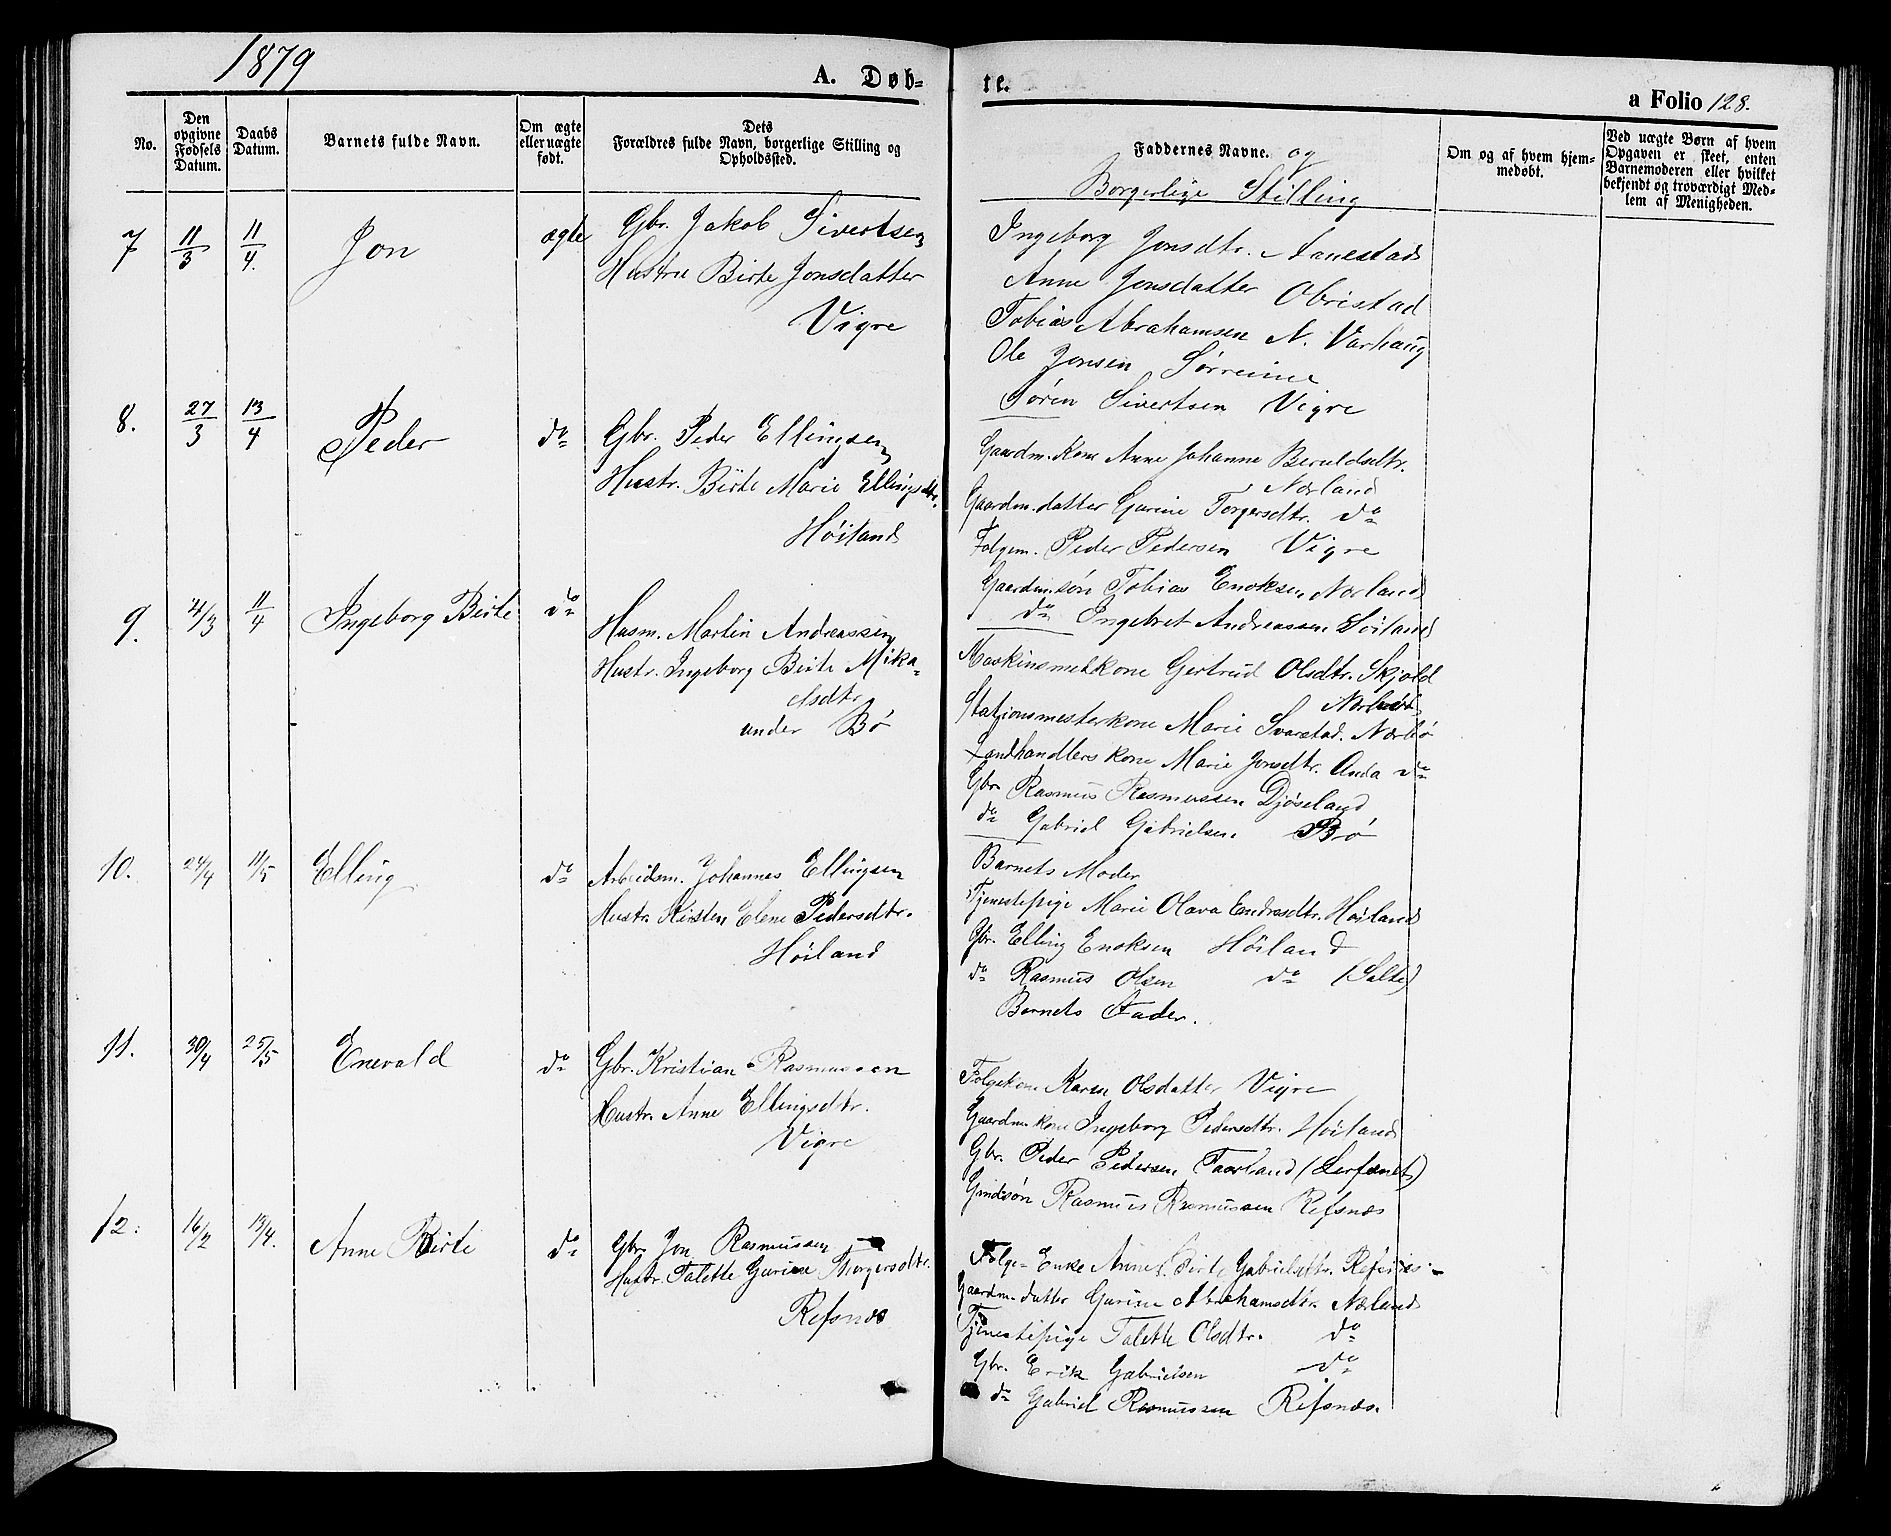 1879
A. Døb-
te.
a Folio 128.
No.
Den opgivne Fødsels Datum.
Daabs Datum.
Barnets fulde Navn.
Om ægte eller uægte født.
Dets Forældres fulde Navn, borgerlige Stilling og Opholdssted.
Faddernes Navne. og
Borgerlige Stilling
Om og af hvem hjem-
medøbt.
Ved uægte Børn af hvem
Opgaven er skeet, enten
Barnemoderen eller hvilket
bekjendt og troværdigt Med-
lem af Menigheden.
7 11/3 11/4 Jon ægte Gbr. Jakob Sivertsen
Hustru Birte Jonsdatter
Vigre
Ingeborg Jonsdtr. Aanestad
Anne Jonsdatter Obristad
Tobias Abrahamsen N. Varhaug
Ole Jonsen Sørreime
Søren Sivertsen Vigre
8. 27/3 13/4 Peder do Gbr. Peder Ellingsen
Hustr. Birte Marie Ellingsdtr.
Høiland
Gaardm. Kone Anne Johanne Beruldsdtr.
Nærland
Gaardm. datter Gurine Torgersdtr. do
Folgem. Peder Pedersen Vigre
Gaardm. søn Tobias Enoksen Nærland
do Ingebret Andreassen Høiland
9. 4/3 11/4 Ingeborg Birte do Husm. Martin Andreassen
Hustr. Ingeborg Birte Mika-
elsdtr.
under Bø
Maskinsmedkone Gertrud Olsdtr. Skjold
Nærbø
Stationsmesterkone Marie Svarstad. Nærbø
Landhandlers kone Marie Jonsdtr. Anda do
Gbr. Rasmus Rasmussen Djøseland
do Gabriel Gabrielsen Bø
10. 24/4 11/5 Elling do Arbeidsm. Johannes Ellingsen
Hustr. Kirsten Elene Pedersdtr.
Høiland
Barnets Moder
Tjenestepige Marie Olava Endresdtr. Høiland
Gbr. Elling Enoksen Høiland
do Rasmus Olsen do (Salte)
Barnets Fader.
11. 30/4 25/5 Enevald do Gbr. Kristian Rasmussen
Hustr. Anne Ellingsdtr.
Vigre
Folgekone Karen Olsdatter Vigre
Gaardm. kone Ingeborg Pedersdtr. Høiland
Gbr. Peder Pedersen Taarland
Rasmus Rasmussen Refsnæs
12. 16/2 13/4. Anne Birte do Gbr. Jon Rasmussen
Hustr. Talette Gurine Thorgersdtr.
Refsnæs
Folge-Enke Anne Birte Gabrielsdtr. Refsnæs.
Gaardm. datter Gurine Abrahamsdtr. Nærland
Tjenestepige Talette Olsdtr. do
Gbr. Erik Gabrielsen do
do Gabriel Rasmussen Refsnæs.